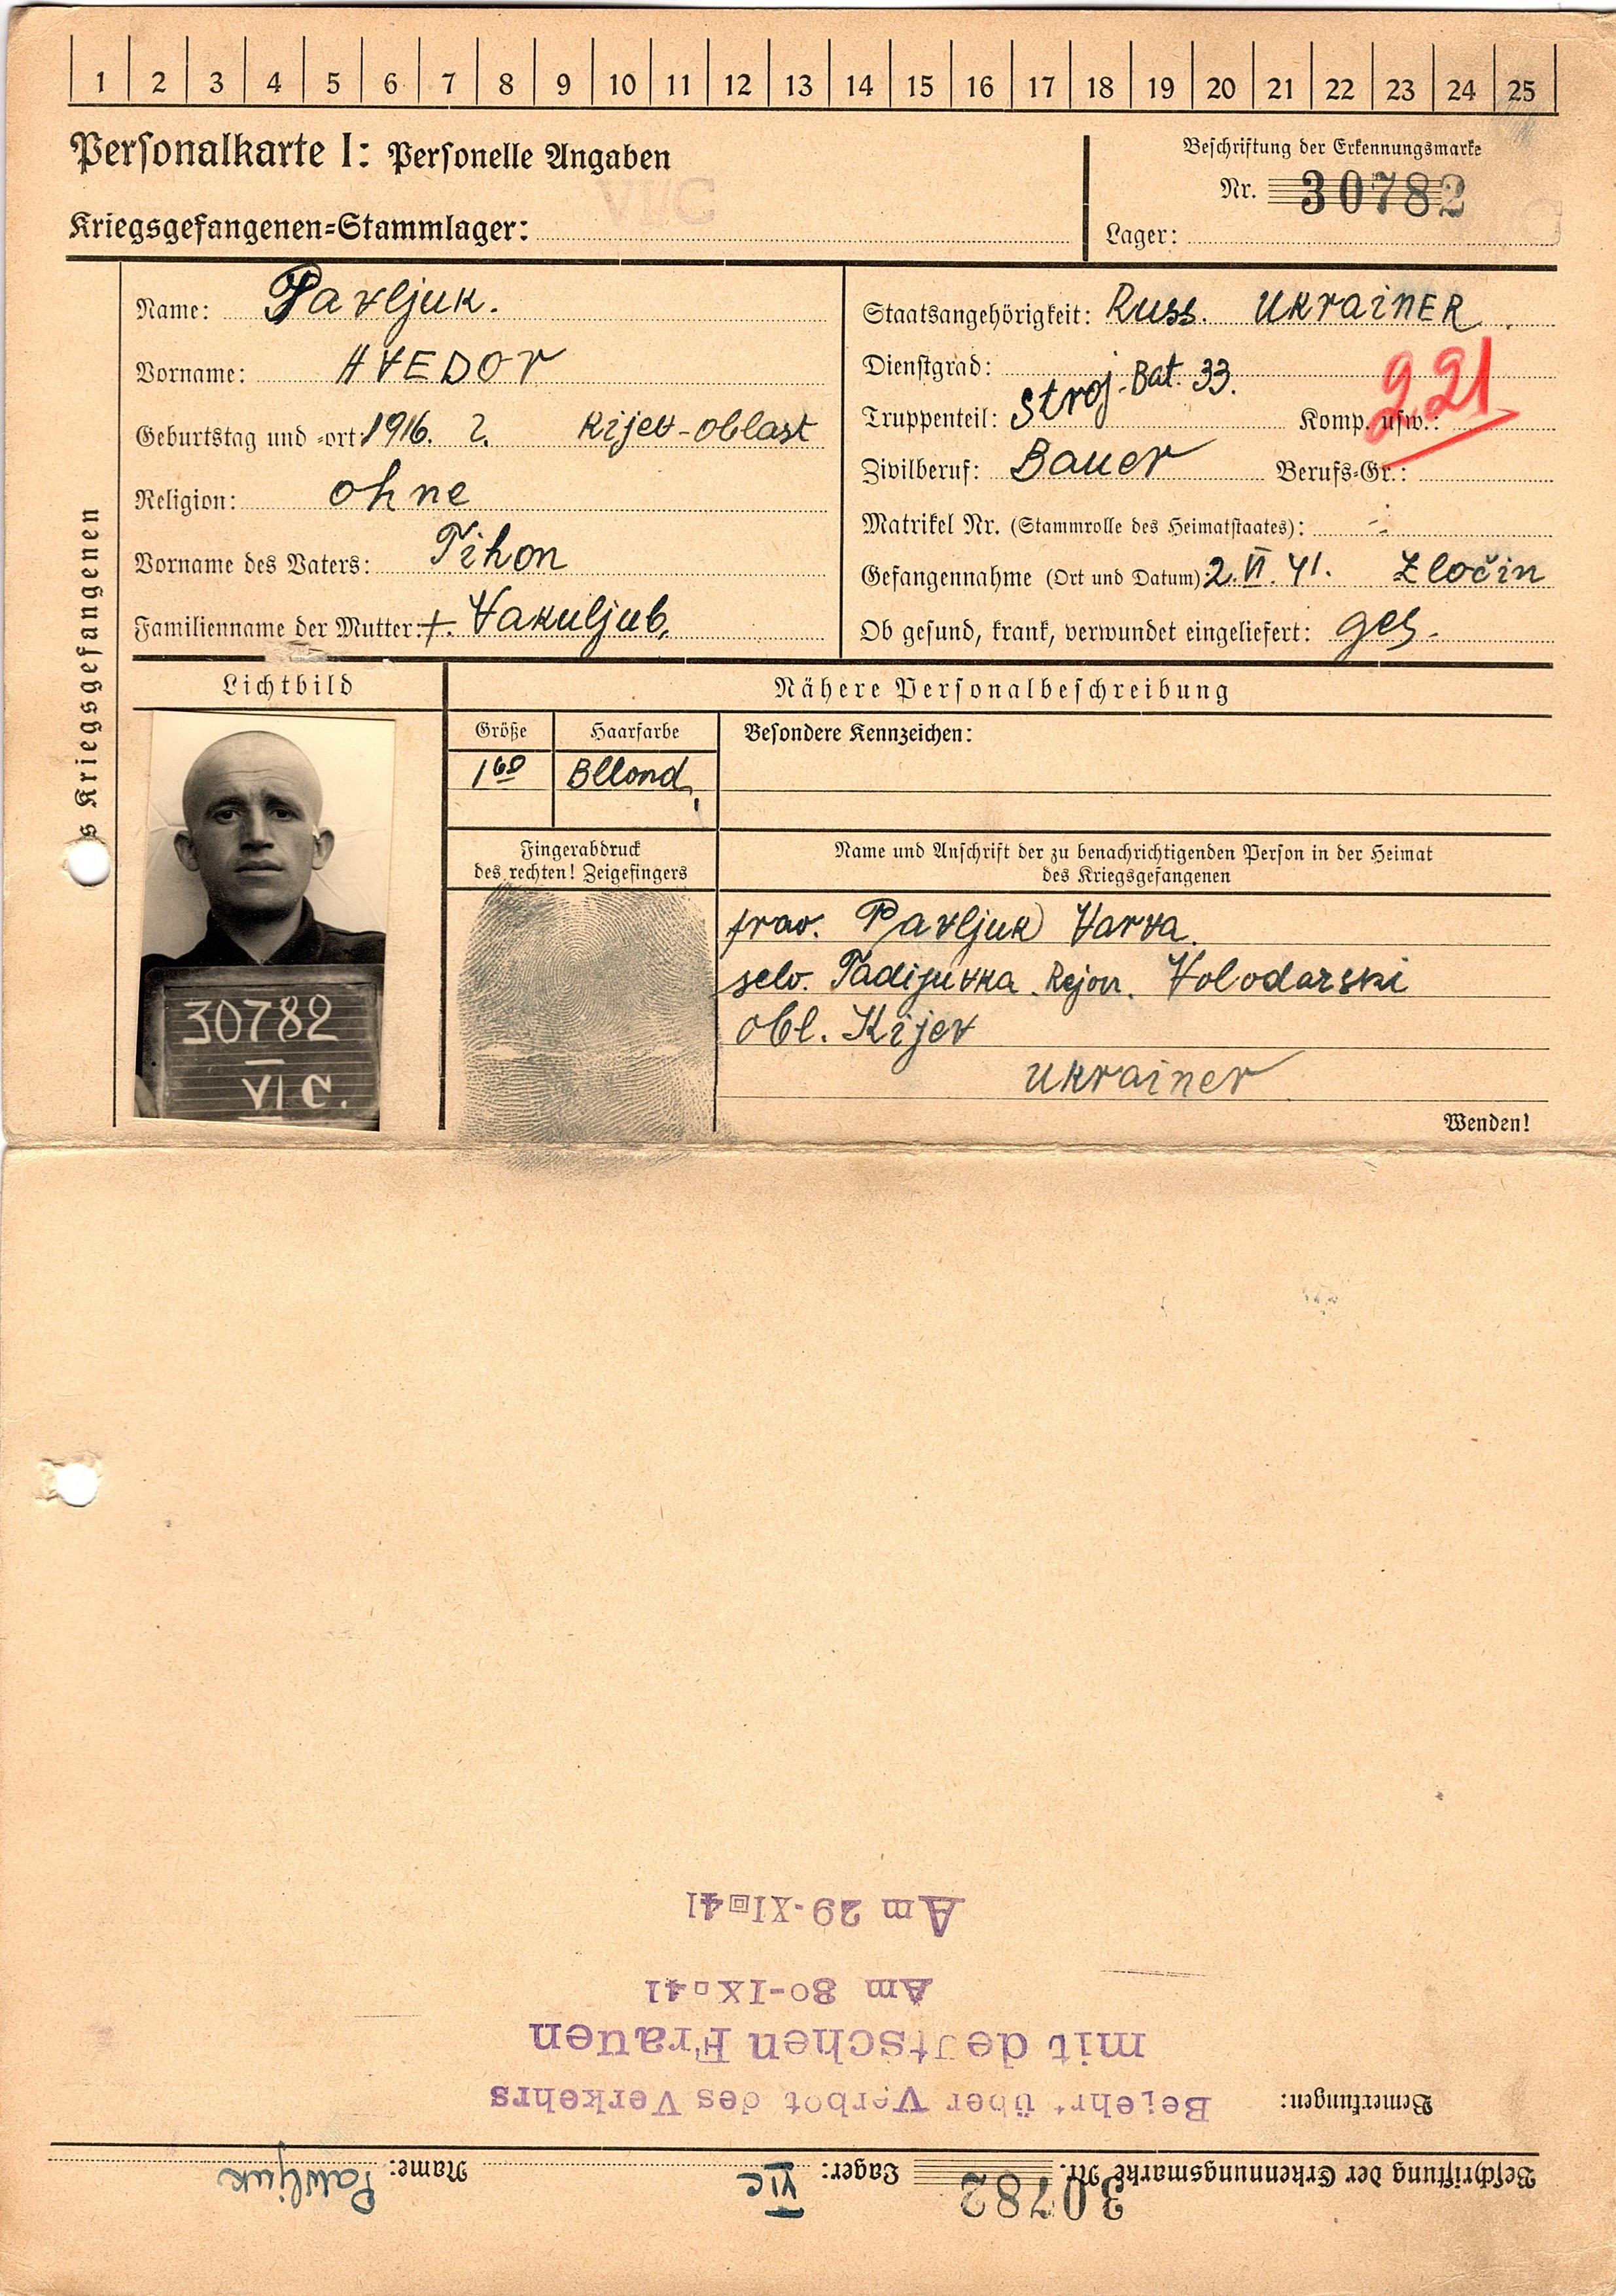 1 2 3 4 5 6 7 8 9 10 11 12 13 14 15 16 17 18 19 20 21 22 23 24 25
Personalkarte I: Personelle Angaben
VI/C
Kriegsgefangenen-Stammlager:
Beschriftung der Erkennungsmarke
Nr. 30782
Lager:
des Kriegsgefangenen
Name: Pavljuk.
Vorname: HVEDOR
Geburtstag und -ort: 1916. ?. Kijev-oblast
Religion: ohne
Vorname des Vaters: Tihon
Familienname der Mutter: +. Vakuljub.
Staatsangehörigkeit: Russ. UKRAINER
Dienstgrad:
Truppenteil: Stroj-Bat. 33. Komp. usw.:
221
Zivilberuf: Bauer Berufs-Gr.:
Matrikel Nr. (Stammrolle des Heimatstaates): -
Gefangennahme (Ort und Datum): 2. VI. 41. Zločin
Ob gesund, krank, verwundet eingeliefert: ges.
Lichtbild
30782
VI C.
Nähere Personalbeschreibung
Größe Haarfarbe Besondere Kennzeichen:
1 60 Bllond,
Fingerabdruck
des rechten! Zeigefingers
Name und Anschrift der zu benachrichtigenden Person in der Heimat
des Kriegsgefangenen
Pavljuk Varva.
selo. Tadijuvka. Rejon. Volodarski
obl. Kijev
Ukrainer
Wenden!
Beschriftung der Erkennungsmarke Nr. 30782 Lager: VIC Name: Pawljuk
Bemerkungen: Belehrt über Verbot des Verkehrs
mit deutschen Frauen
Am 30-IX 41
Am 29-XI 41